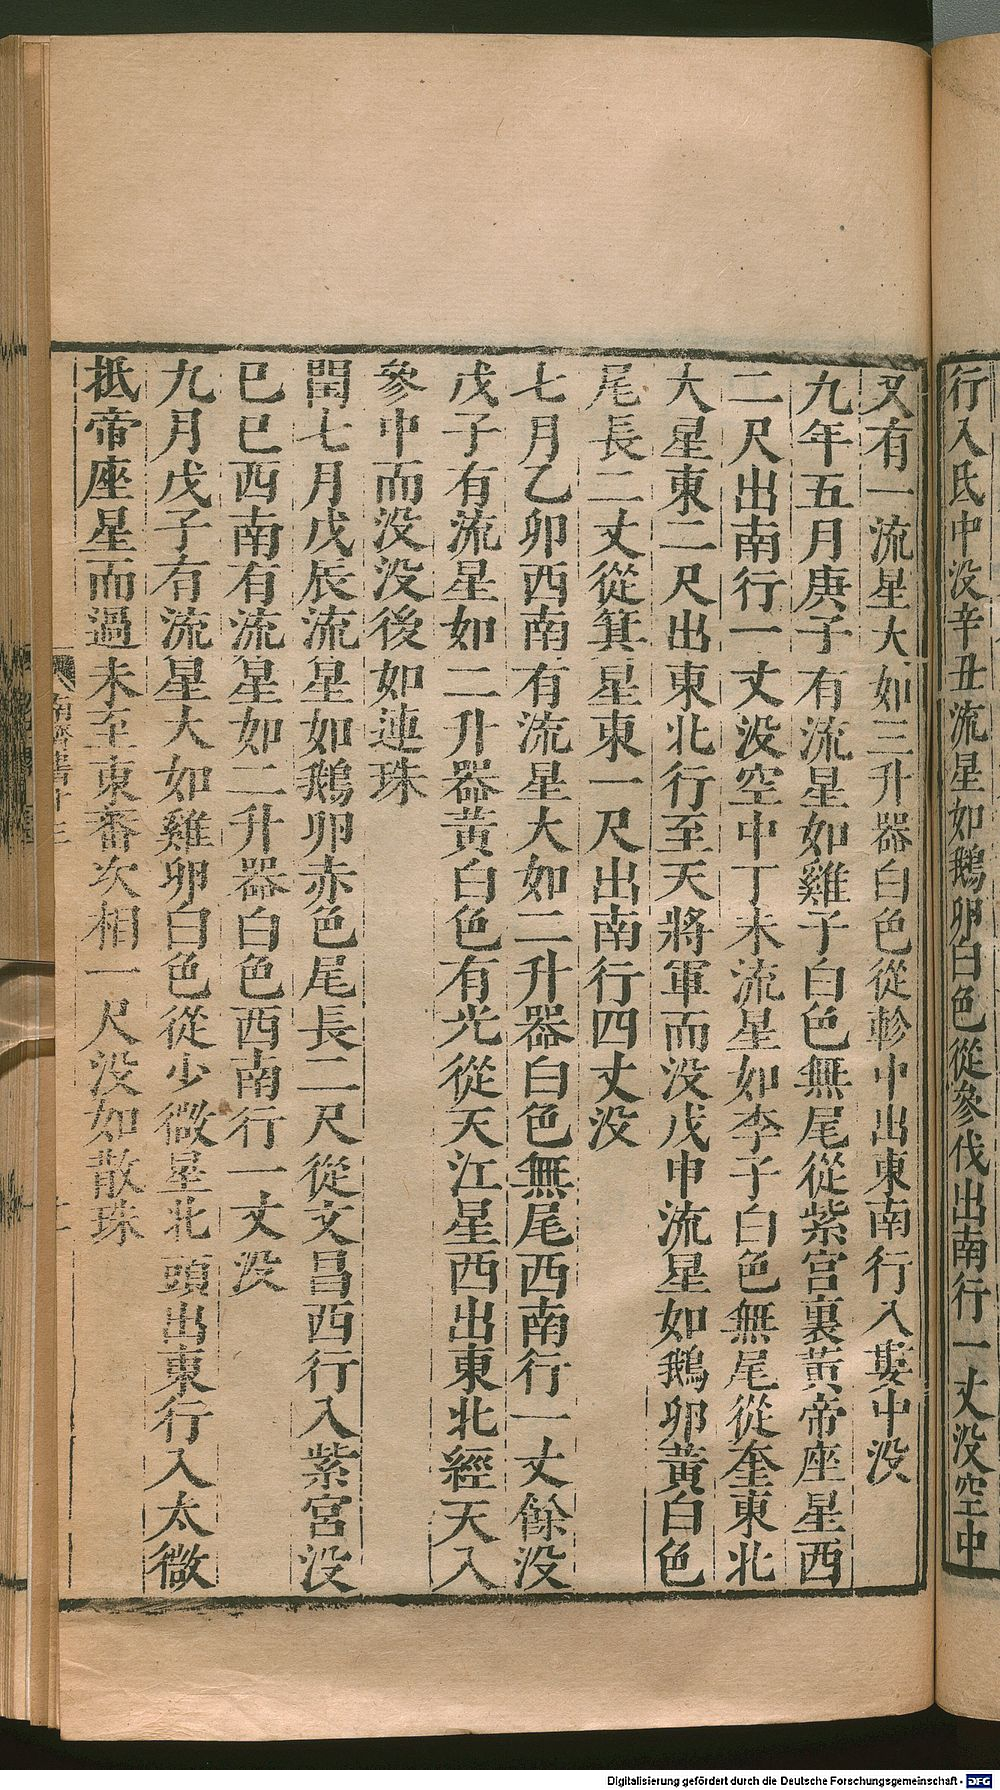 行入氐中没辛丑流星如鵝卵白色從參伐出南行一丈没空中
又有一流星大如三升器白色從軫中出東南行入婁中没
九年五月庚子有流星如雞子白色無尾從紫宮裏黃帝座星西
二尺出南行一丈没空中丁未流星如李子白色無尾從奎東北
大星東二尺出東北行至天將軍而没戊申流星如鵝卵黃白色
尾長二丈從箕星東一尺出南行四丈没
七月乙卯西南有流星大如二升器白色無尾西南行一丈餘没
戊子有流星如二升器黃白色有光從天江星西出東北經天入
參中而没没後如連珠
閏七月戊辰流星如鵝卵赤色尾長二尺從文昌西行入紫宮没
巳巳西南有流星如二升器白色西南行一丈没
九月戊子有流星大如雞卵白色從少微星北頭出東行入太微
抵帝座星而過未至東蕃次相一尺没如散珠
南齊書十三
Digitalisierung gefördert durch die Deutsche Forschungsgemeinschaft - DFG